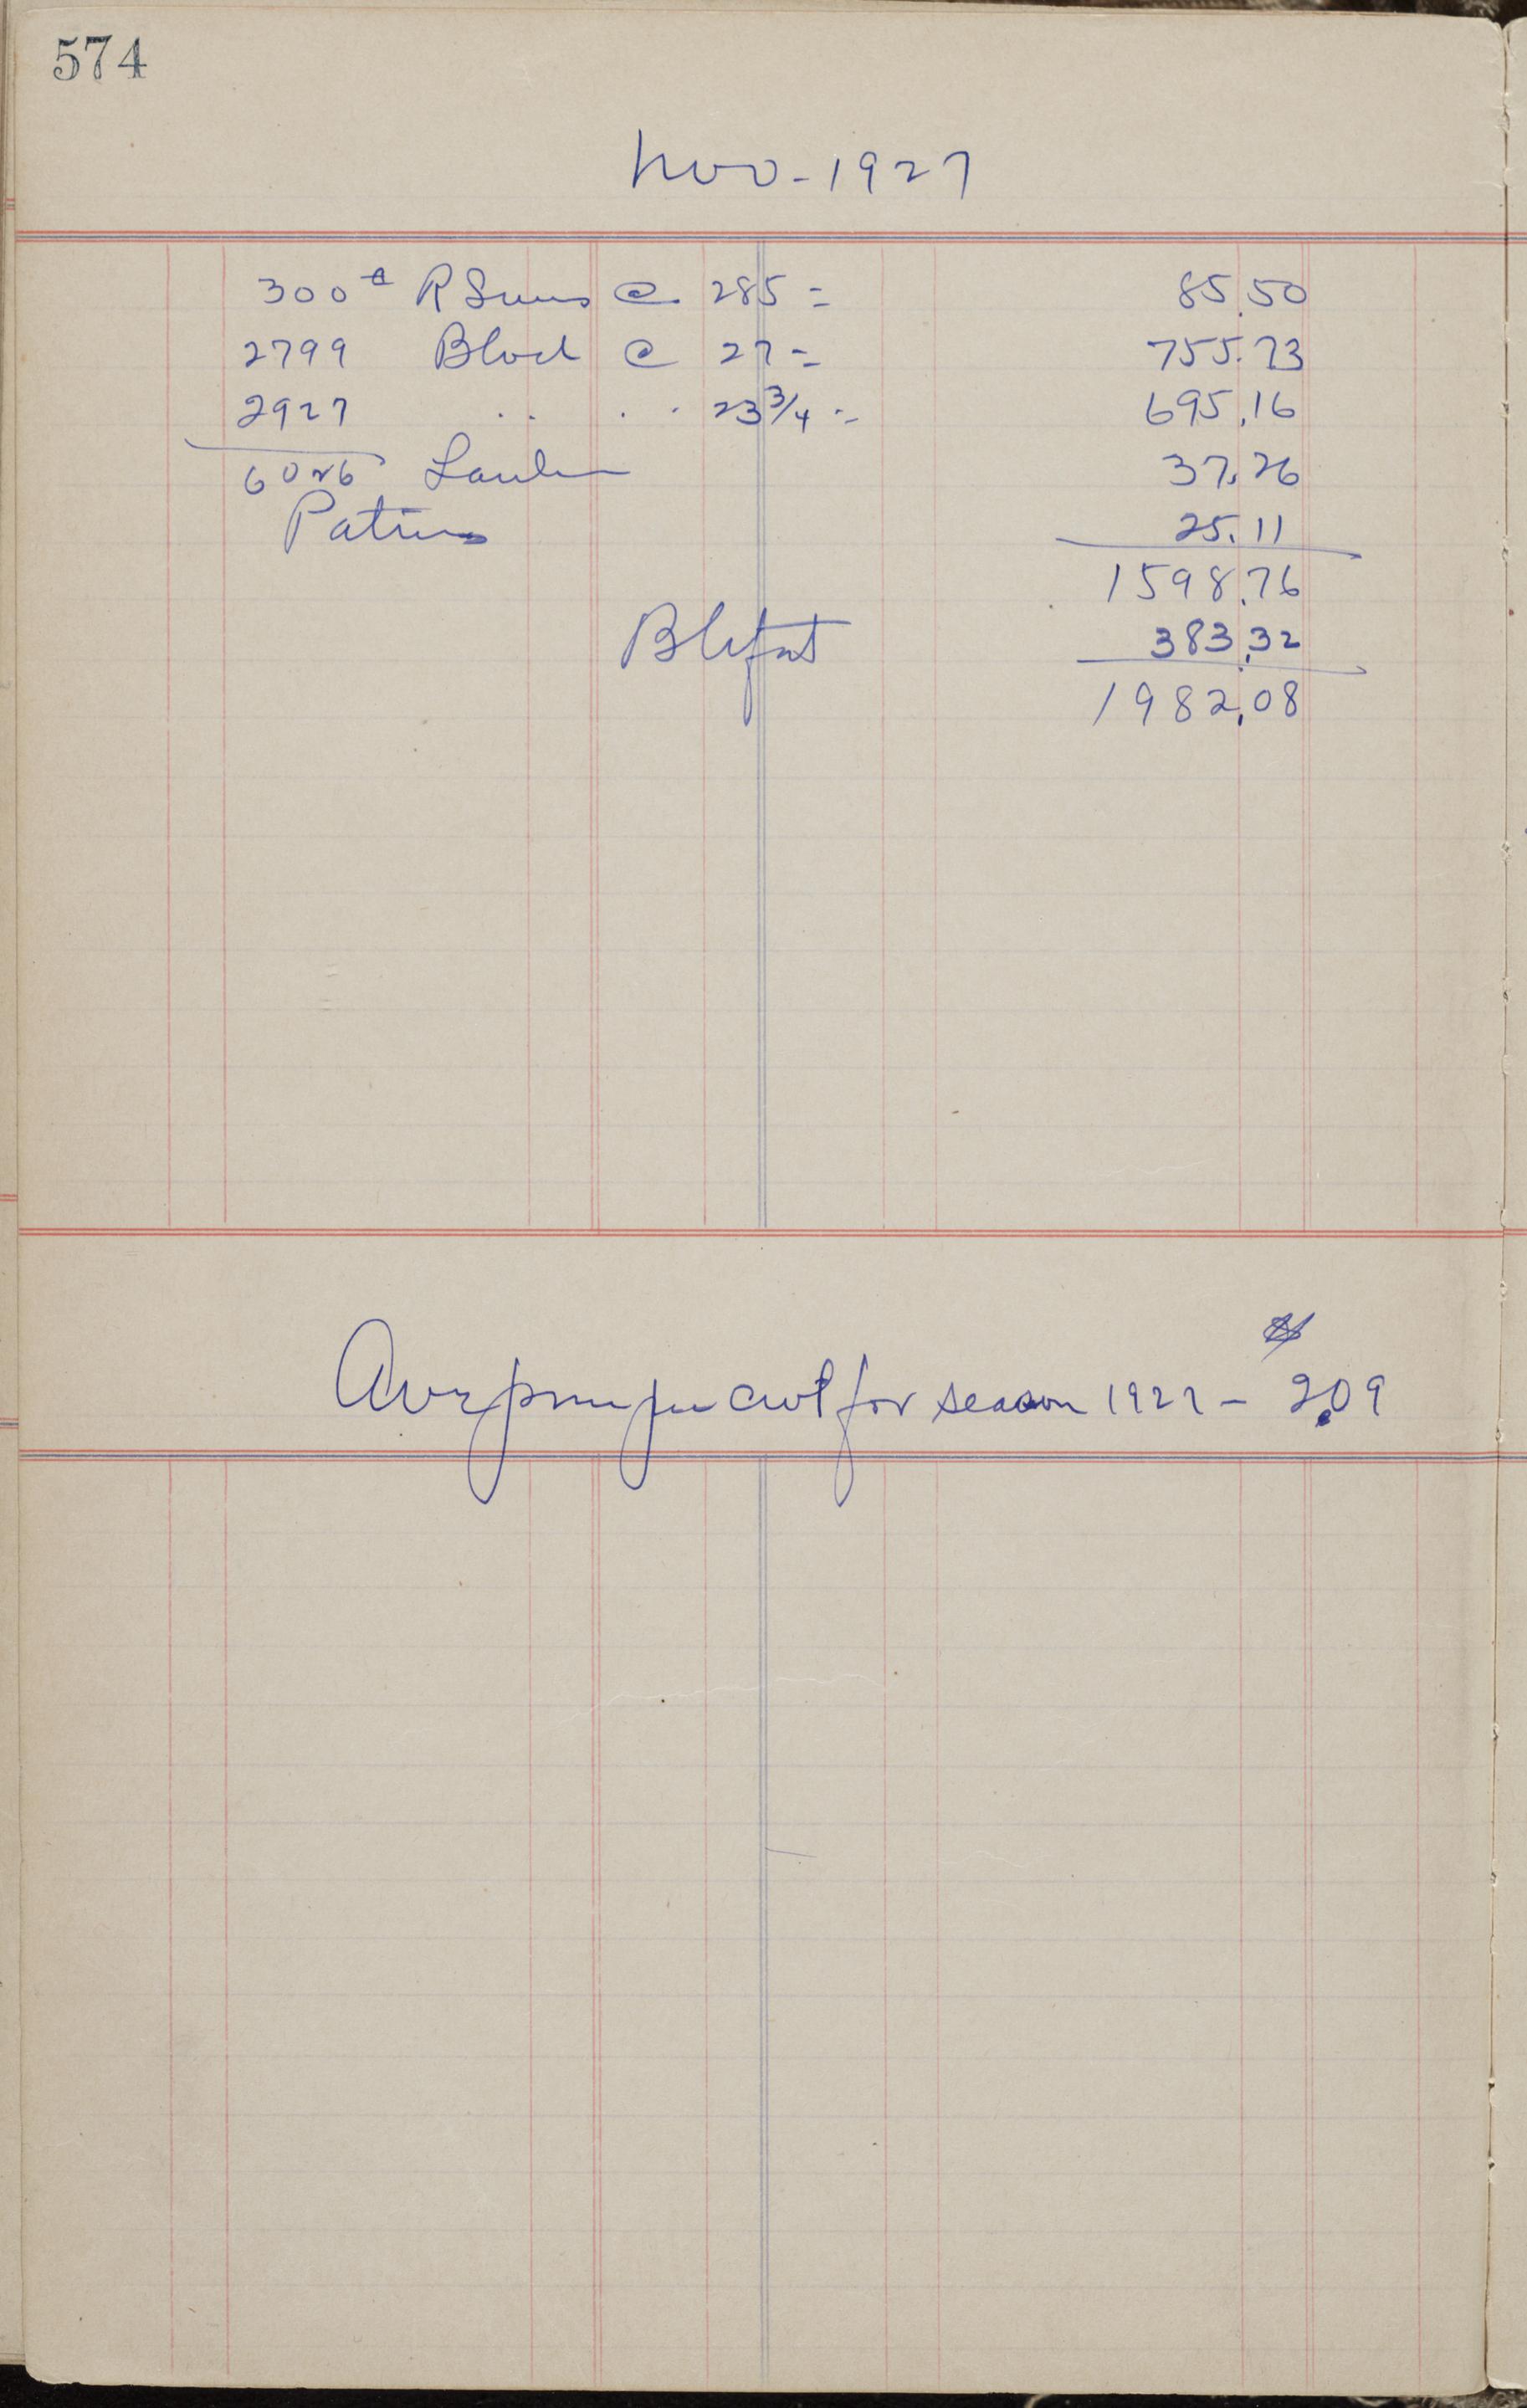 574
Nov - 1927
300# R Swiss @ 285 = 85.50
2799 Block @ 27 = 755.73
2927 .. .. 23 3/4 = 695.16
6026 37.26
Patrons 25.11
1598.76
383.32
1982.08
Avg price per cwt for season 1927 - $2.09